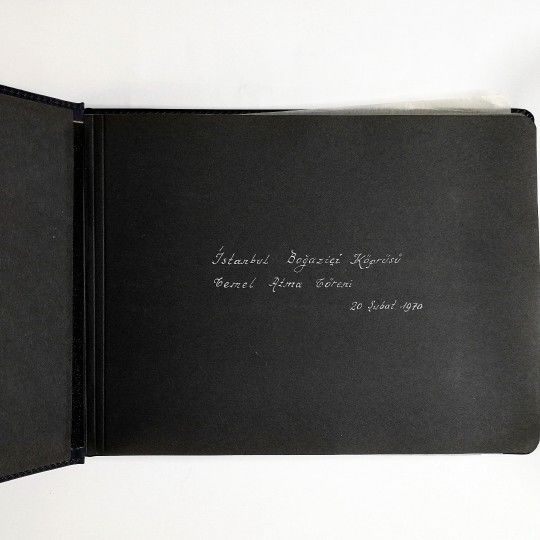 İstanbul Boğaziçi Köprüsü
Temel Atma Töreni
20 Şubat 1970